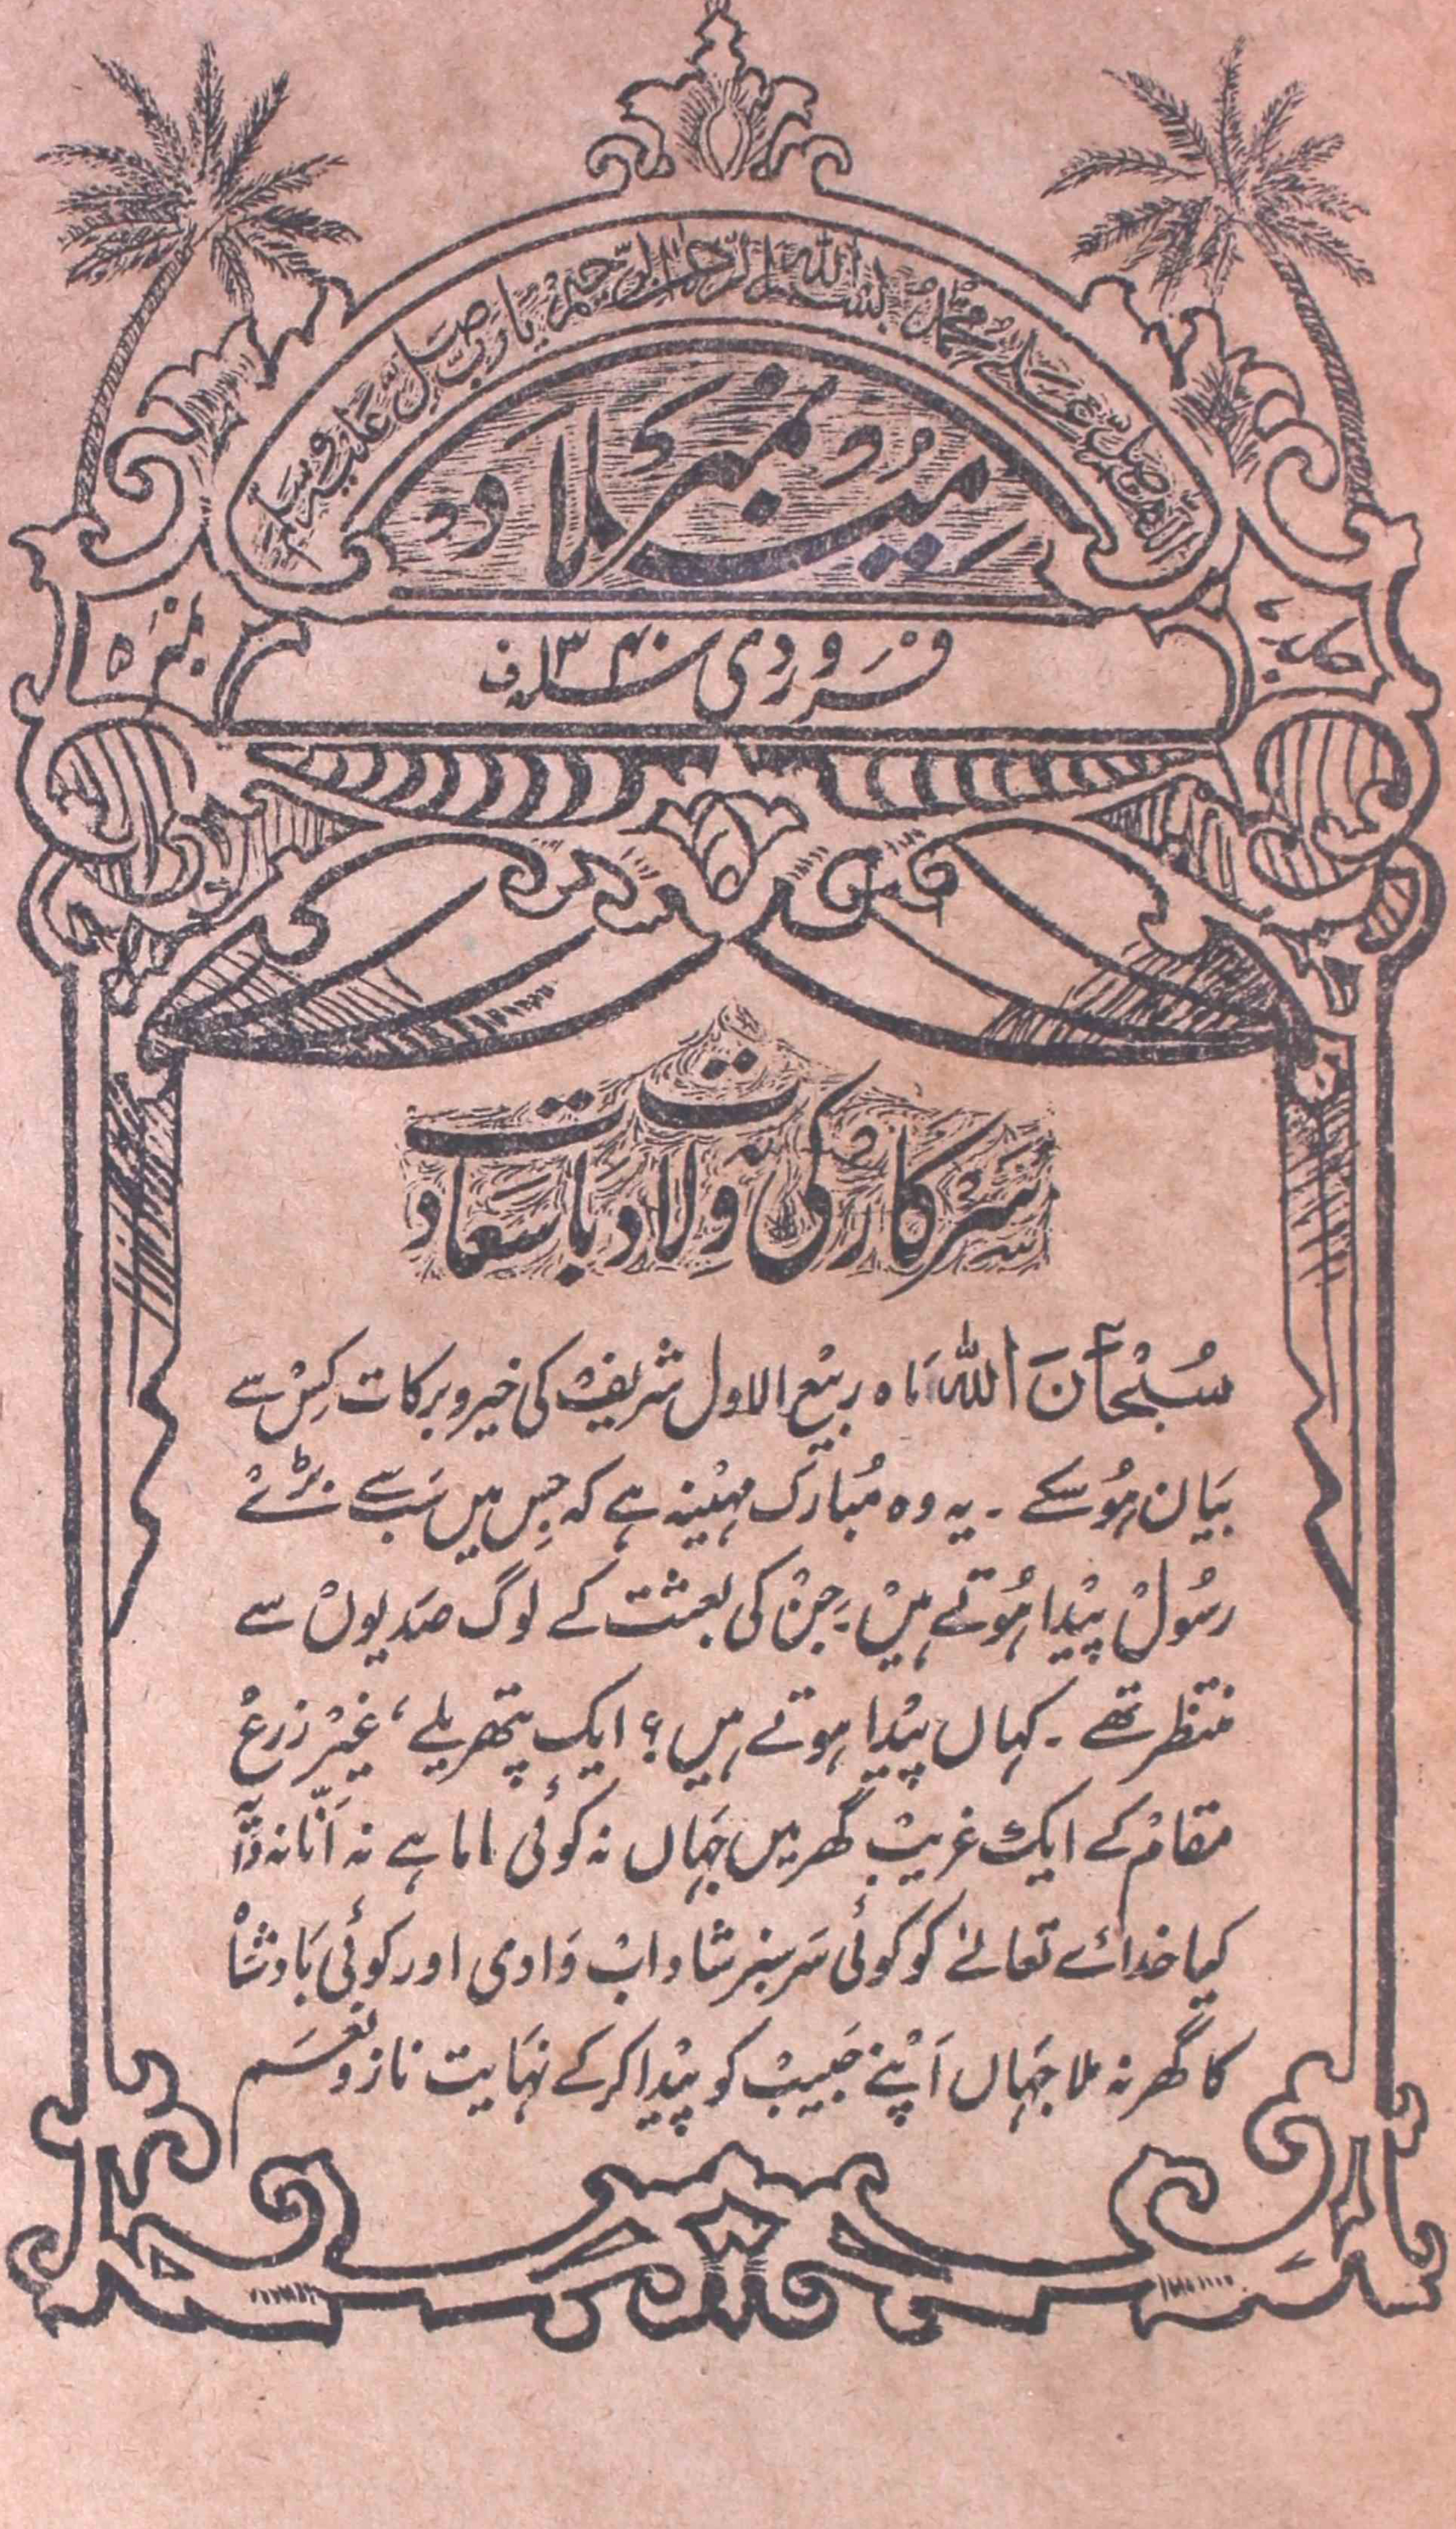 بسم اللہ الرحمن الرحیم
یا رب صل علیہ وسلم
میلاد نمبر
فروردی سنہ ۱۳۴۰ف
نمبر ۵
سرکار کی ولادت باسعادت
سُبْحَانَ اللہ مَاہ ربیع الاول شریف کی خیر و برکات کِس سے
بیَان ہوسکے ۔ یہ وہ مُبارَک مہینہ ہے کہ جِس میں سَب سے بڑے
رسُول پیْدا ہُوتے ہیں ۔ جِن کی بعثت کے لوگ صَدیوں سے
منتظر تھے ۔ کہاں پیْدا ہوتے ہیں ؟ ایک پتھریلے ، غیْر زرع
مقام کے ایک غریب گھر میں جہَاں نہ کوئی ماما ہے نہ اَنّا نہ دَایَہ
کیا خدائے تعالےٰ کو کوئی سَرسبز شاداب وَادی اور کوئی بَادشاہ
کا گھر نہ ملا جہَاں اَپنے حَبیب کو پیْدا کرکے نہَایت ناز و نعَم